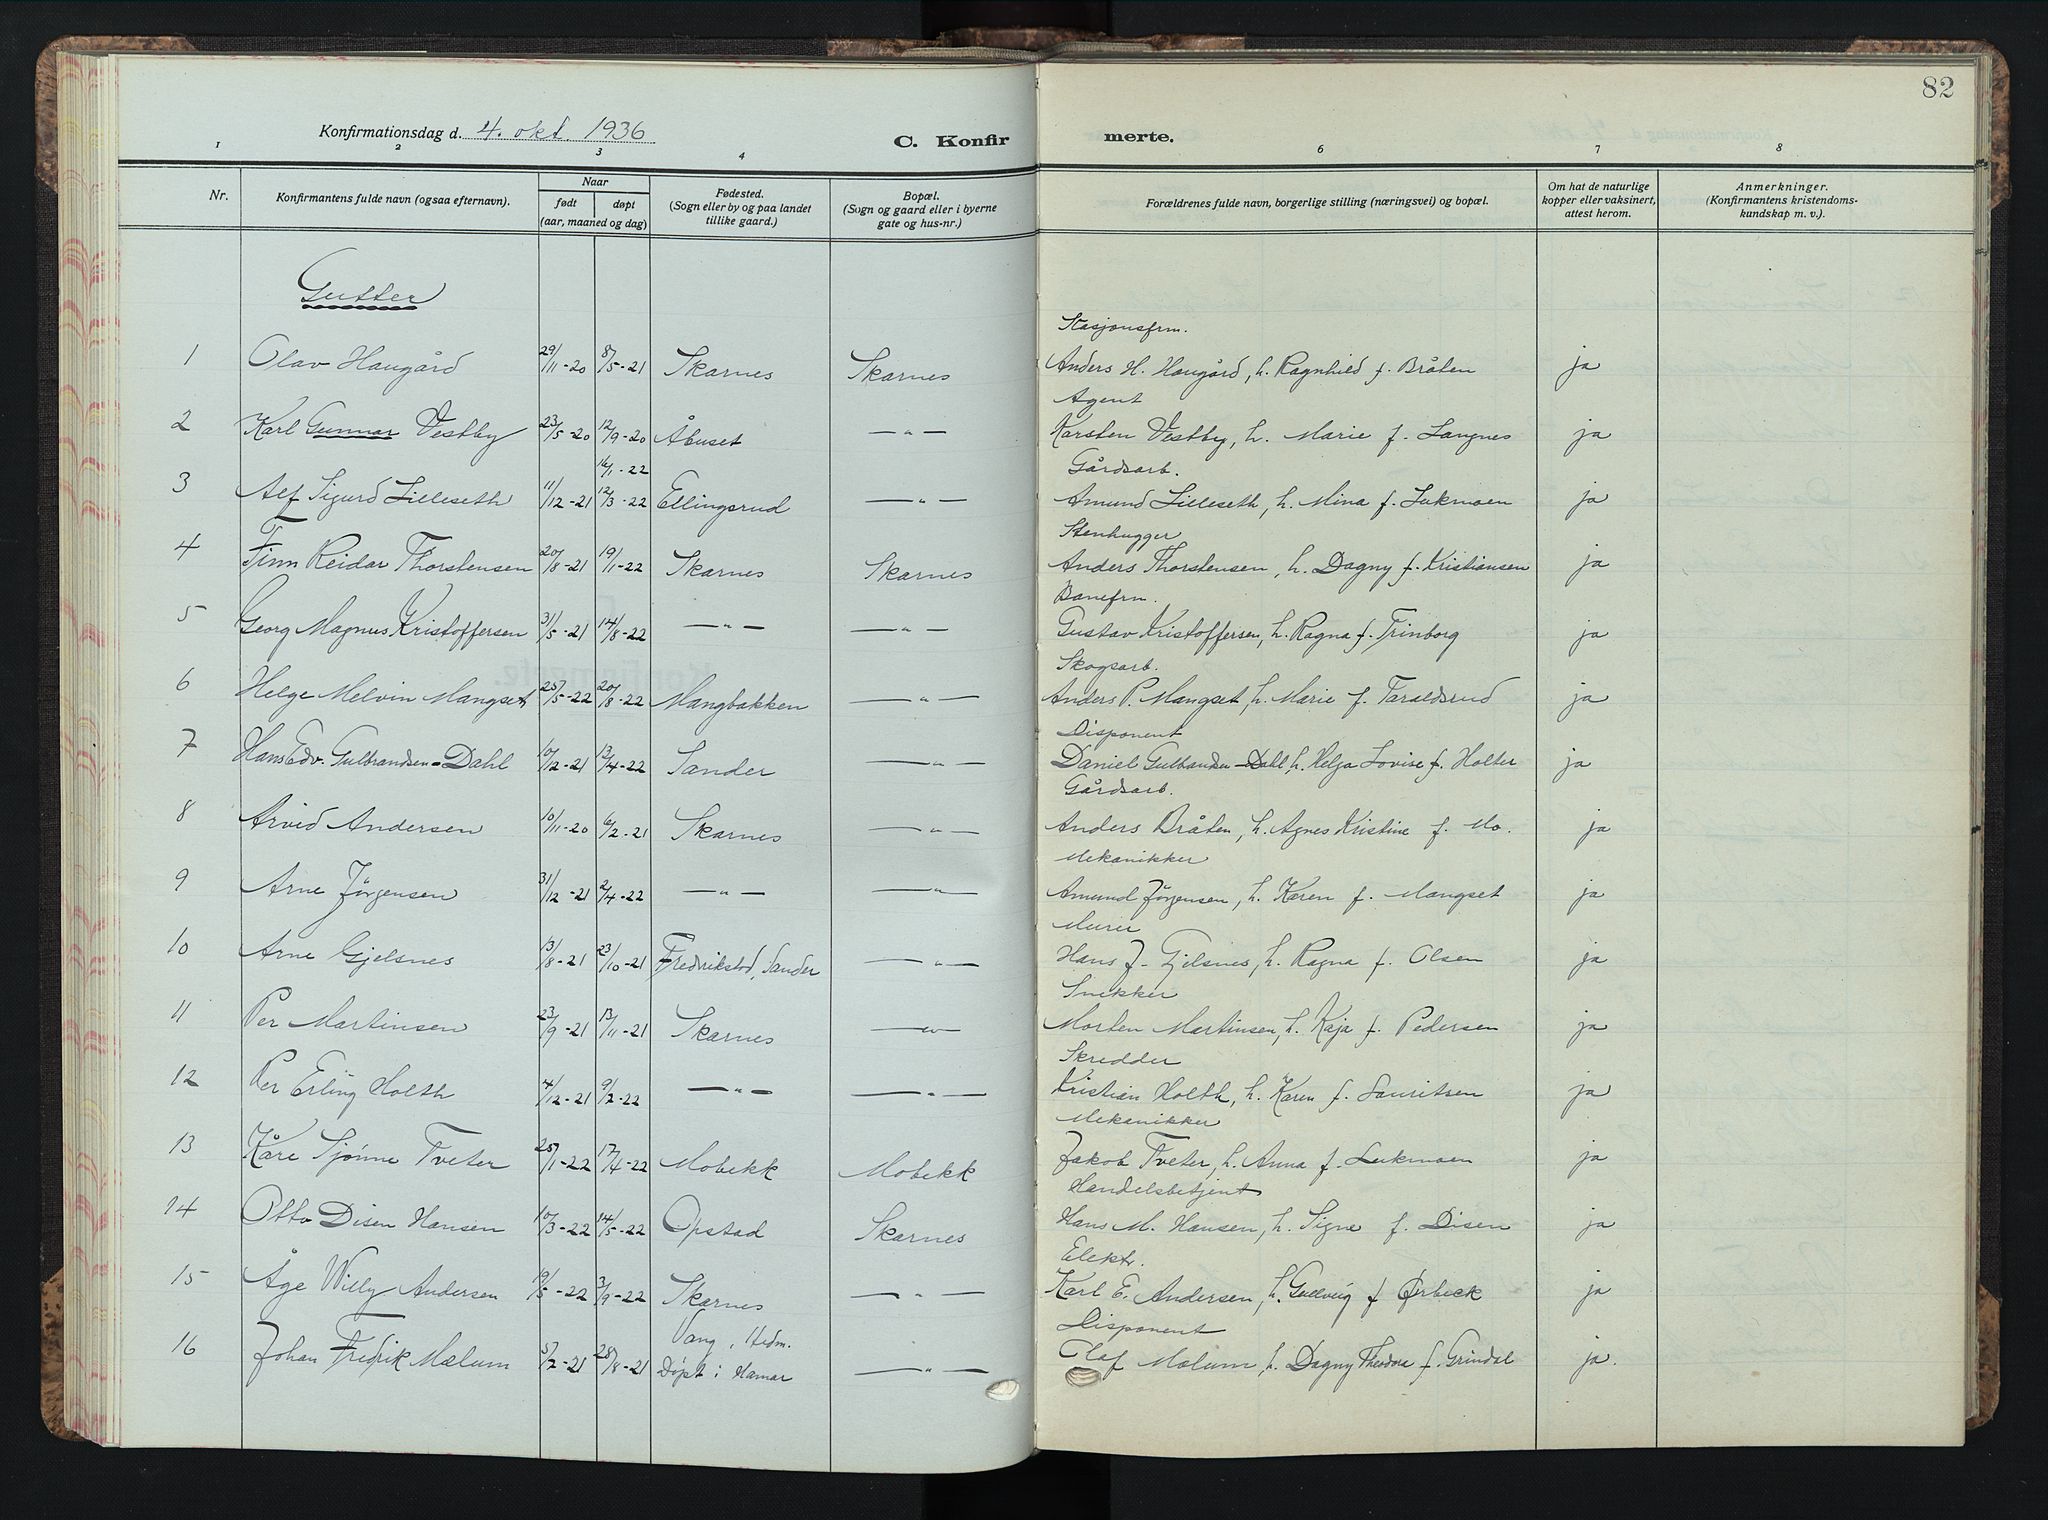 82
Konfirmationsdag d. 4. okt. 1936
C. Konfirmerte.
1 2 3 4 6 7 8
Nr.
Konfirmantens fulde navn (ogsaa efternavn).
Naar
født døpt
(aar, maaned og dag)
Fødested.
(Sogn eller by og paa landet
tillike gaard.)
Bopæl.
(Sogn og gaard eller i byerne
gate og hus-nr.)
Forældrenes fulde navn, borgerlige stilling (næringsvei) og bopæl.
Om hat de naturlige
kopper eller vaksinert,
attest herom.
Anmerkninger.
(Konfirmantens kristendoms-
kundskap m. v.)
Gutter
Stasjonsfrm.
1 Olav Haugård 29/11-20 8/5-21 Skarnes Skarnes Anders H. Haugård, h. Ragnhild f. Bråten ja
Agent
2 Karl Gunnar Vestby 23/5-20 12/9-20 Åbuset — " — Karsten Vestby, h. Marie f. Langnes ja
16/1-22 Gårdsarb.
3 Alf Sigurd Lilleseth 11/12-21 12/3-22 Ellingsrud — " — Amund Lilleseth, h. Mina f. Lukmoen ja
Stenhugger
4 Finn Reidar Thorstensen 20/8-21 19/1-22 Skarnes Skarnes Anders Thorstensen, h. Dagny f. Kristiansen ja
Banefrm.
5 Georg Magnus Kristoffersen 31/5-21 14/8-22 — " — — " — Gustav Kristoffersen, h. Ragna f. Trinborg ja
Skogsarb.
6 Helge Melvin Mangset 25/5-22 20/8-22 Mangbakken — " — Anders P. Mangset, h. Marie f. Taraldsrud ja
Disponent
7 Hans Edv. Gulbrandsen-Dahl 10/12-21 13/4-22 Sander — " — Daniel Gulbandsen-Dahl, h. Helga Lovise f. Holter ja
Gårdsarb.
8 Arvid Andersen 10/11-20 6/2-21 Skarnes — " — Anders Bråten, h. Agnes Kristine f. Mo. ja
Mekanikker
9 Arne Jörgensen 31/12-21 2/4-22 — " — — " — Amund Jörgensen, h. Karen f. Mangset ja
Murer
10 Arne Gjelsnes 13/8-21 23/10-21 Fredrikstad, Sander — " — Hans J. Gjelsnes, h. Ragna f. Olsen ja
Snekker
11 Per Martinsen 23/9-21 13/11-21 Skarnes — " — Morten Martinsen, h. Kaja f. Pedersen ja
Skredder
12 Per Erling Holth 4/12-21 9/2-22 — " — — " — Kristian Holth, h. Karen f. Lauritsen ja
Mekanikker
13 Kåre Sjönne Tveter 25/1-22 17/4-22 Mobekk Mobekk Jakob Tveter, h. Anna f. Lukmoen ja
Handelsbetjent
14 Otto Disen Hansen 10/3-22 14/5-22 Opstad Skarnes Hans M. Hansen, h. Signe f. Disen ja
Elektr.
15 Åge Willy Andersen 19/5-22 3/9-22 Skarnes — " — Karl E. Andersen, h. Gullvig f Ørbeck ja
Vang, Hedm. Disponent
16 Johan Fredrik Mælum 5/7-21 28/8-21 Døpt i Hamar — " — Olaf Mælum, h. Dagny Theodora f. Grindal ja.